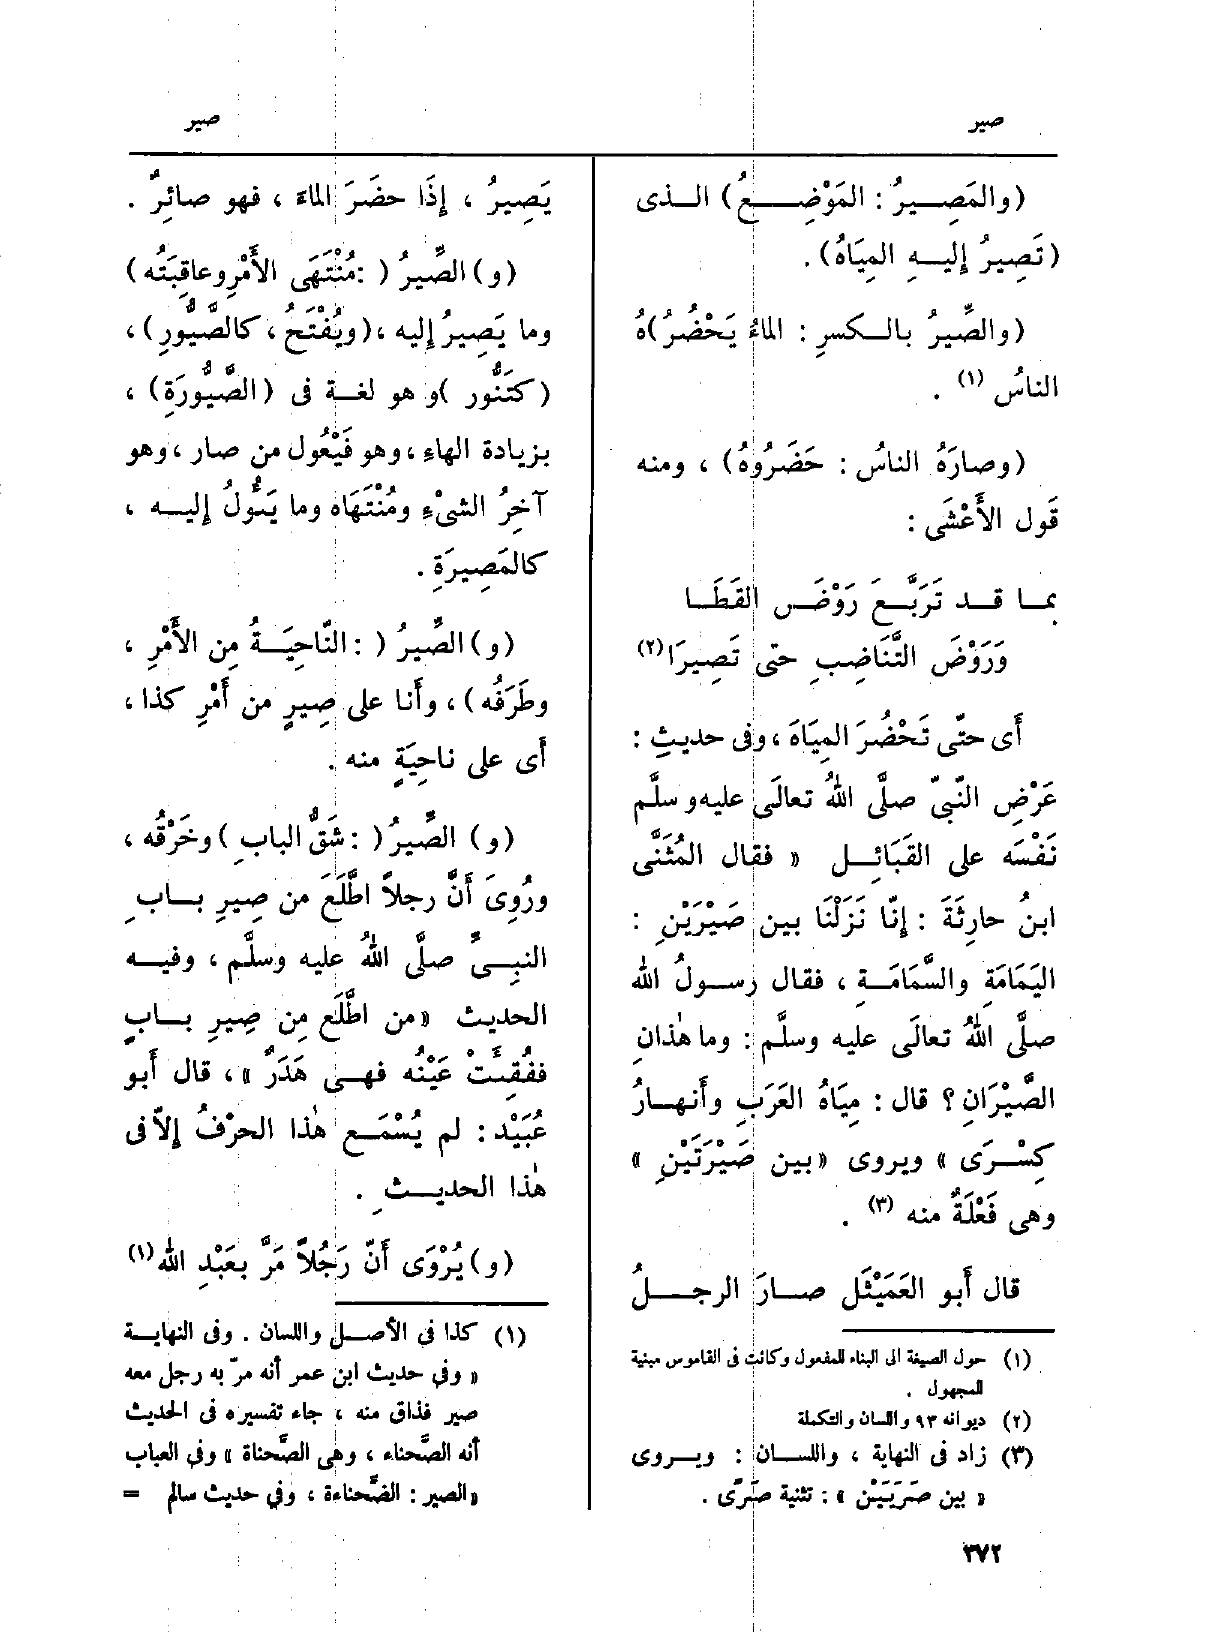 صير
صير
(والمَصِيرُ : المَوْضِعُ) الذى
(تَصِيرُ إليه المِيَاهُ) .
(والصِّيرُ بالكسرِ : الماءُ يَحْضُرُ)هُ
الناسُ (١) .
(وصارَهُ الناسُ : حَضَرُوهُ) ، ومنه
قَول الأَعْشَى :
بما قد تَرَبَّعَ رَوْضَ القَطَا
وَرَوْضَ التَّنَاضِبِ حتى تَصِيرَا(٢)
أَى حتّى تَحْضُرَ المِيَاهَ ، وفى حديثِ :
عَرْضِ النّبىّ صلَّى اللهُ تعالَى عليه وسلَّم
نَفْسَه على القَبَائِل « فقال المُثَنَّى
ابنُ حارِثَةَ : إنَّا نَزَلْنَا بين صَيْرَيْنِ :
اليَمَامَةِ والسَّمَامَةِ ، فقال رسولُ الله
صلَّى اللهُ تعالَى عليه وسلَّم : وما هٰذانِ
الصَّيْرَانِ ؟ قال : مِيَاهُ العَرَبِ وأَنهارُ
كِسْرَى » ويروى «بين صَيْرَتَيْنِ »
وهى فَعْلَةٌ منه (٣) .
قال أَبو العَمَيْثَل صارَ الرجلُ
(١) حول الصيغة الى البناء للمفعول وكانت فى القاموس مبنية
للمجهول .
(٢) ديوانه ٩٣ واللسان والتكملة
(٣) زاد فى النهاية ، واللسان : ويروى
« بين صَرَيَيْن » : تثنية صَرًى .
يَصِيرُ ، إِذَا حضَرَ الماءَ ، فهو صائِرٌ .
(و) الصِّيرُ ( : مُنْتَهَى الأَمْرِ وعاقِبَتُه)
وما يَصِيرُ إليه ، (ويُفْتَحُ ، كالصَّيُّورِ) ،
(كتَنُّور )و هو لغة فى (الصَّيُّورَةِ) ،
بزيادة الهاءِ ، وهو فَيْعُول من صار ، وهو
آخِرُ الشىْءِ ومُنْتَهَاه وما يَئُولُ إليه ،
كالمَصِيرَةِ .
(و) الصِّيرُ ( : النّاحِيَةُ مِن الأَمْرِ ،
وطَرَفُه) ، وأَنا على صِيرٍ من أَمْرِ كذا ،
أَى على ناحِيَةٍ منه .
(و) الصِّيرُ( : شَقُّ البابِ )وخَرْقُه ،
ورُوِىَ أَنَّ رجلاً اطَّلَعَ من صِيرِ بابِ
النبىِّ صلَّى اللهُ عليه وسلَّم ، وفيه
الحديث «من اطَّلَع مِن صِيرِ بابٍ
ففُقِئَتْ عَيْنُه فهى هَدَرٌ » ، قال أَبو
عُبَيْد : لم يُسْمَع هٰذا الحرْفُ إلاّ فى
هٰذا الحديثِ .
(و) يُرْوَى أَنّ رَجُلاً مَرَّ بعَبْدِ الله(١)
(١) كذا فى الأصل واللسان . وفى النهاية
« وفى حديث ابن عمر أنه مرّ به رجل معه
صير فذاق منه ، جاء تفسيره فى الحديث
أنه الصَّحناء ، وهى الصَّحناة » وفى العباب
«الصير : الصَّحناءة ، وفى حديث سالم =
٣٧٢